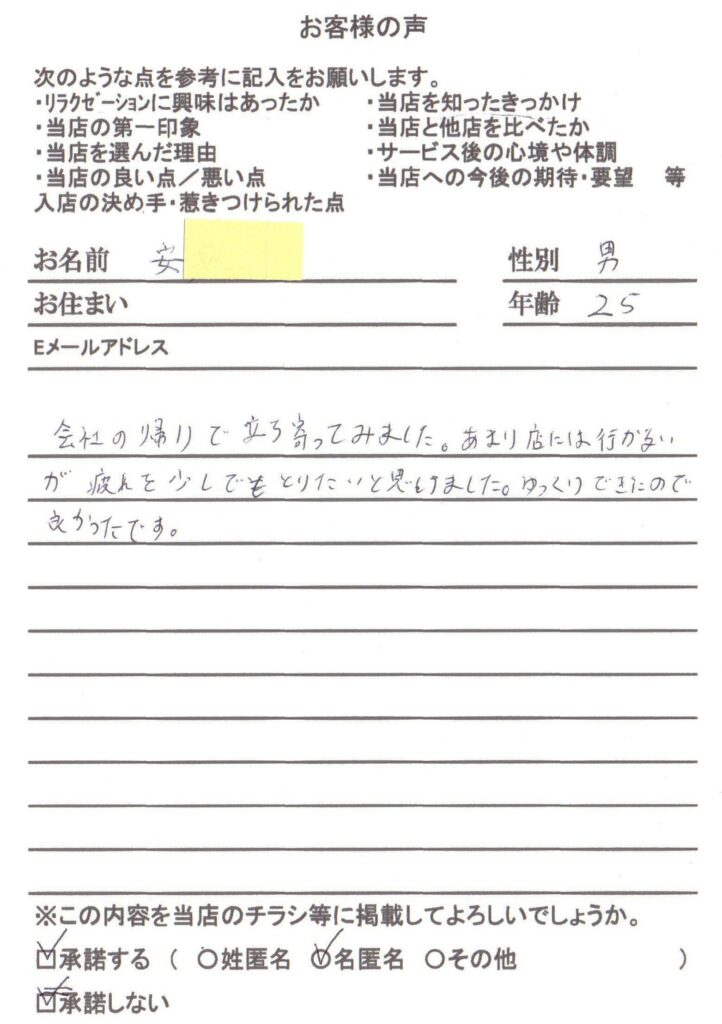 お客様の声
次のような点を参考に記入をお願いします。
・リラクゼーションに興味はあったか　・当店を知ったきっかけ
・当店の第一印象　・当店と他店を比べたか
・当店を選んだ理由　・サービス後の心境や体調
・当店の良い点／悪い点　・当店への今後の期待・要望　等
入店の決め手・惹きつけられた点
お名前　安　性別　男
お住まい　年齢　25
Eメールアドレス
会社の帰りで立ち寄ってみました。あまり店には行かない
が疲れを少しでもとりたいと思いました。ゆっくりできたので
良かったです。
※この内容を当店のチラシ等に掲載してよろしいでしょうか。
☑承諾する（　○姓匿名　☑名匿名　○その他　）
☑承諾しない